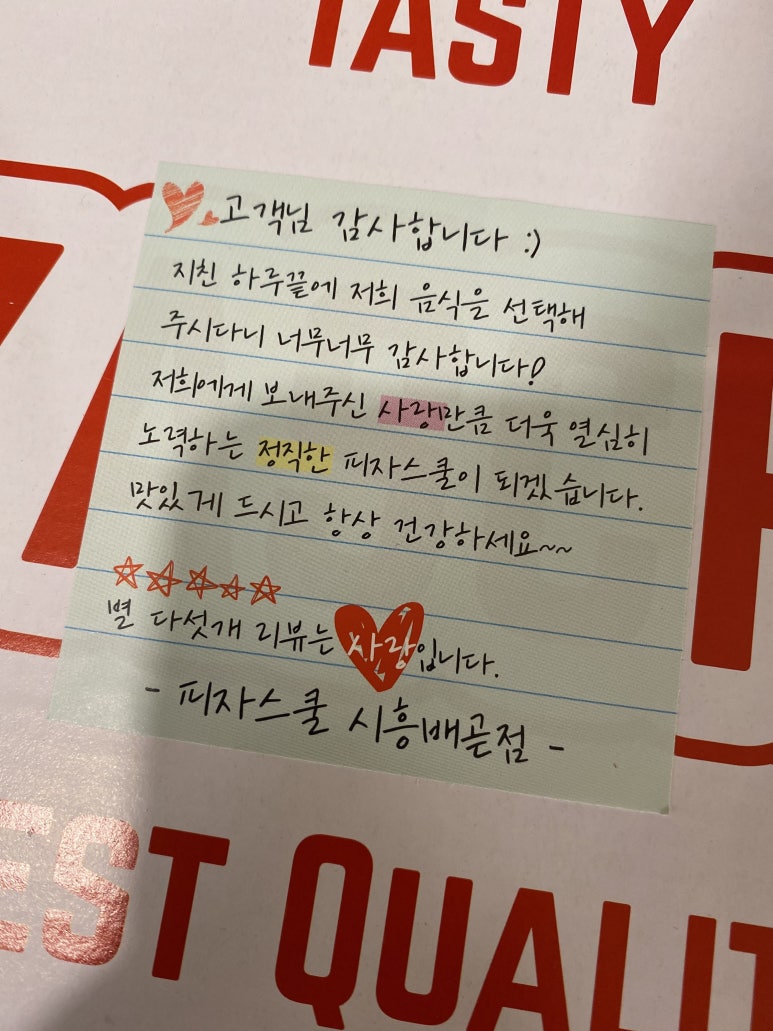 TASTY
고객님 감사합니다 :)
지친 하루끝에 저희 음식을 선택해
주시다니 너무너무 감사합니다!
저희에게 보내주신 사랑만큼 더욱 열심히
노력하는 정직한 피자스쿨이 되겠습니다.
맛있게 드시고 항상 건강하세요~~
별 다섯개 리뷰는 사랑입니다.
- 피자스쿨 시흥배곧점 -
EST QUALIT